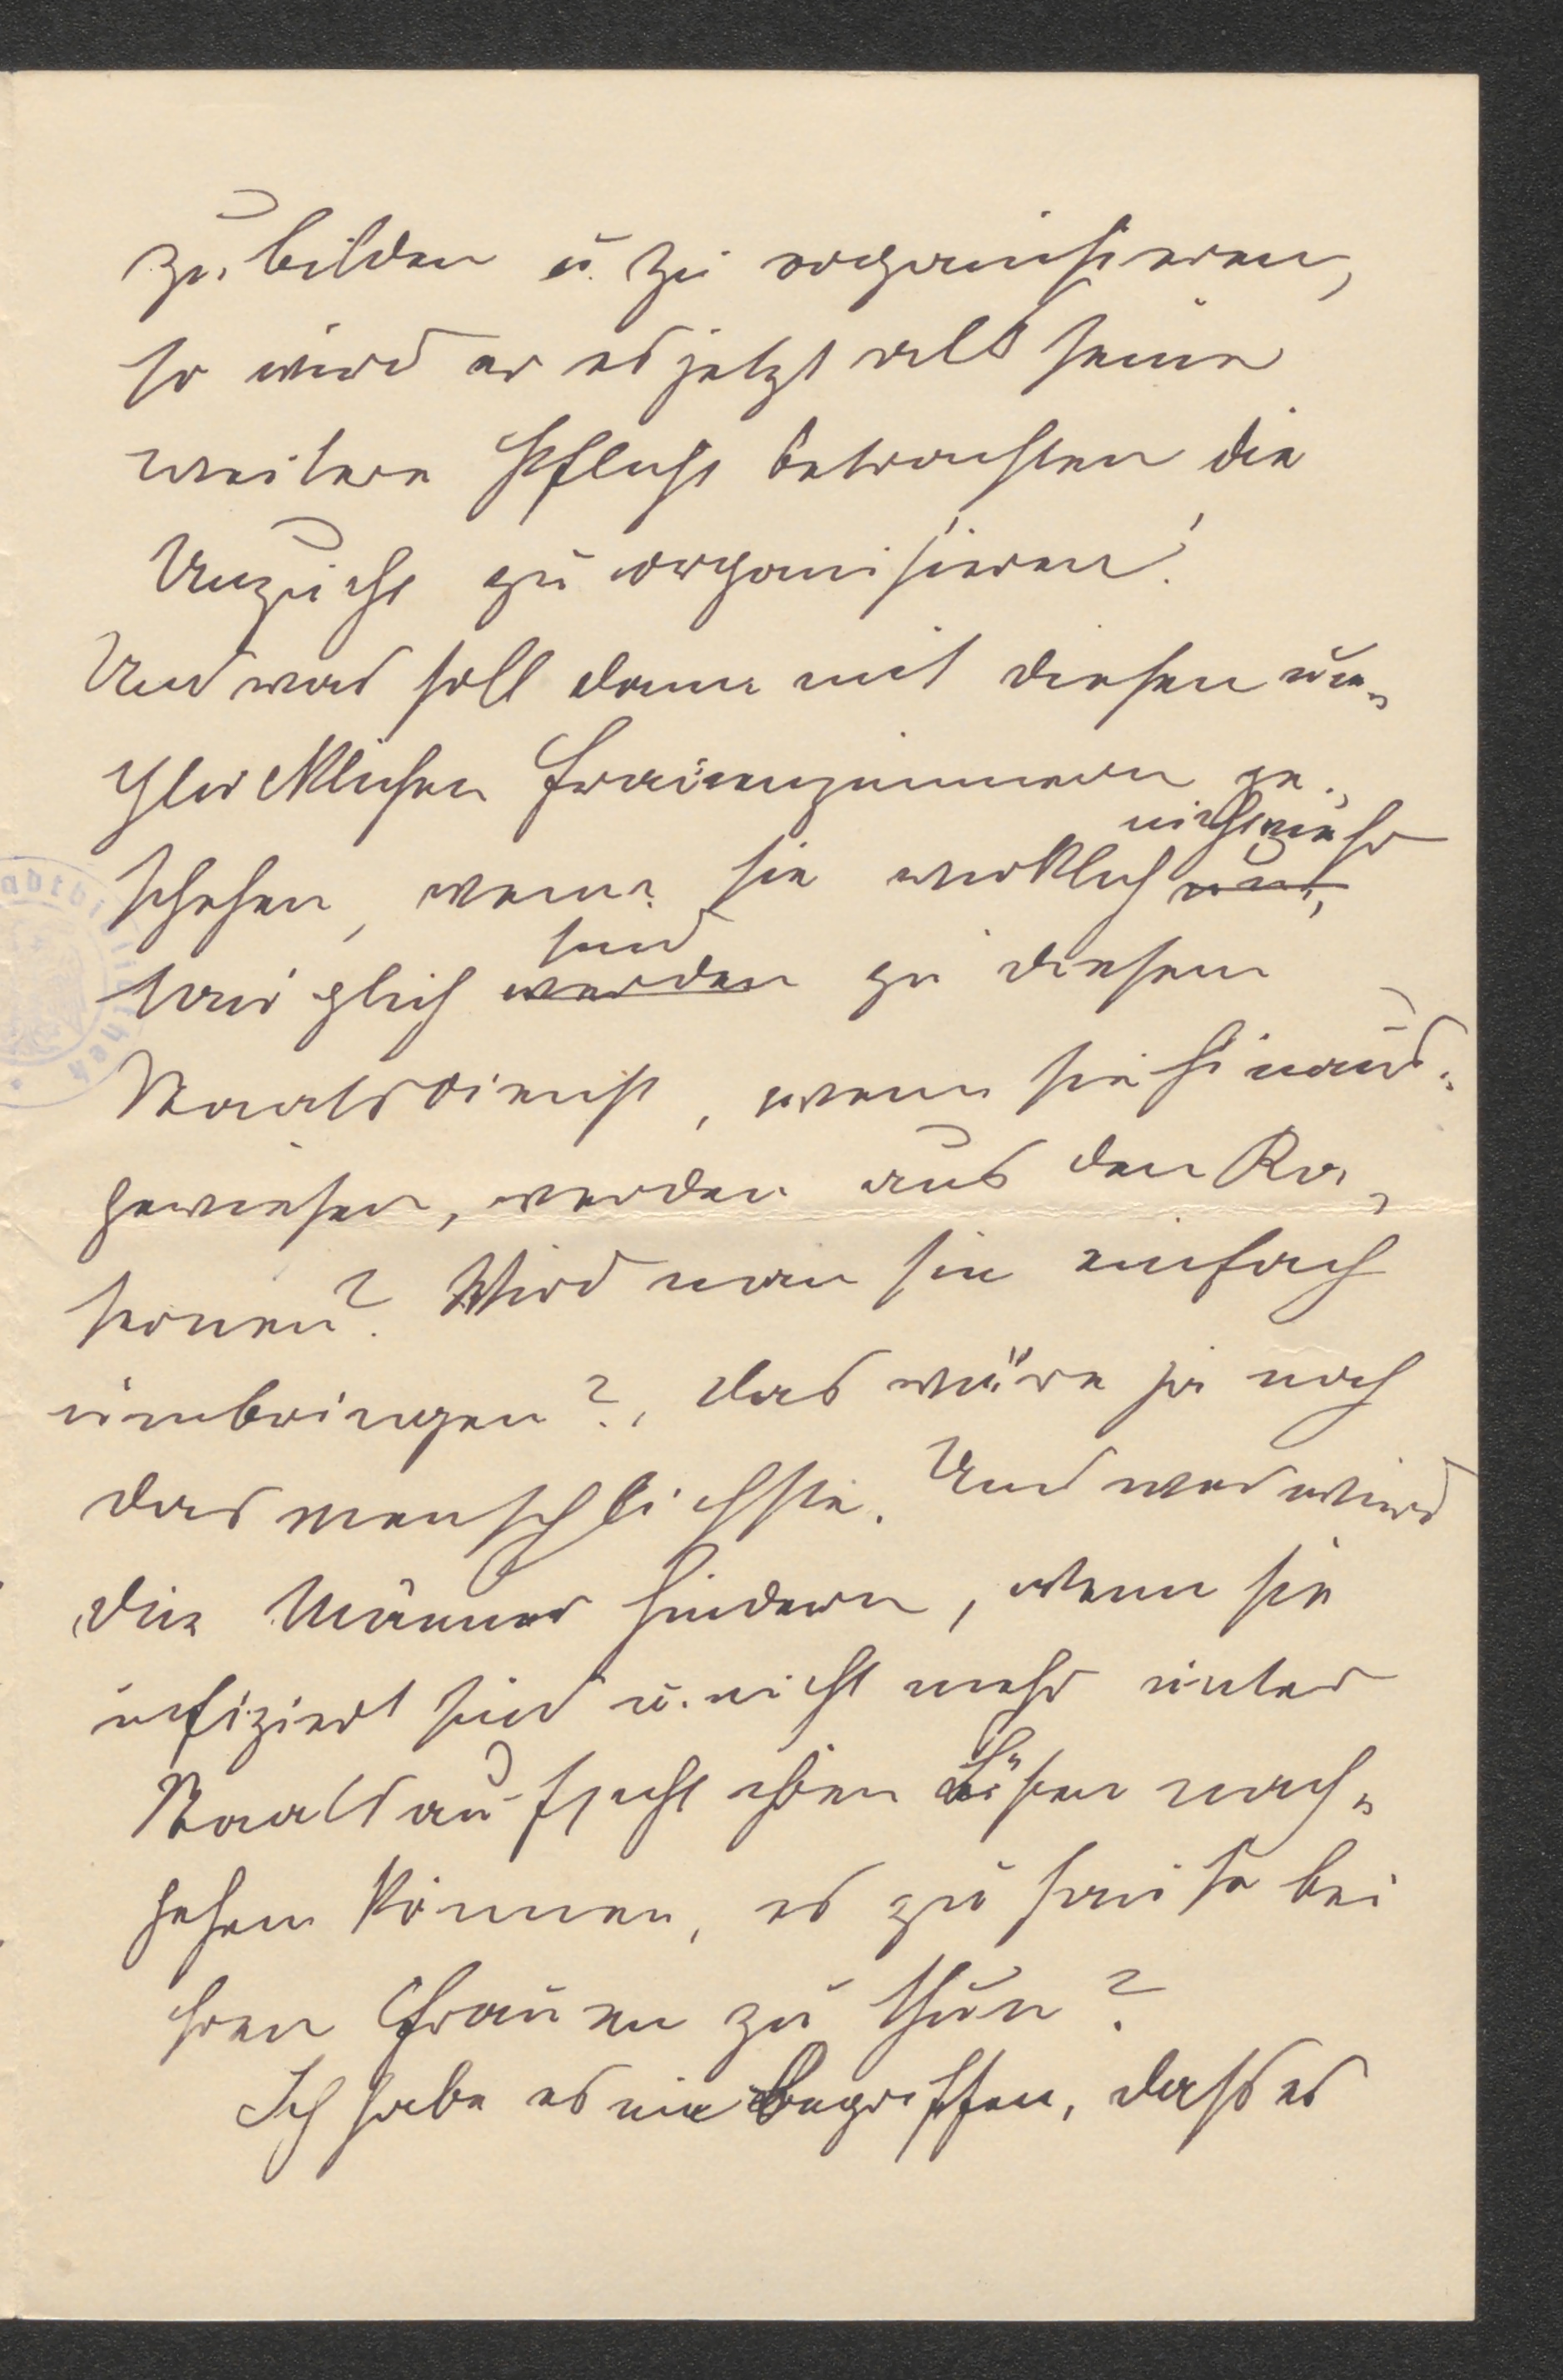 zu bilden u. zu organisieren,
so wird er es jetzt als seine
weitere Pflicht betrachten die
Unzucht zu organisieren!
Und was soll denn mit diesen un-
glücklichen Frauenzimmern ge-
schehen, wenn sie wirklich nicht mehr
tauglich sind werden zu diesem
Staatsdienst, wenn sie hinaus-
gewiesen, werden aus den Ka-
sernen? Wird man sie einfach
umbringen?, das wäre ja noch
das menschlichste. Und was wird
die Männer hindern, wenn sie
infiziert sind u. nicht mehr unter
Staatsaufsicht ihren Lüsten nach-
gehen können, es zu Hause bei
ihren Frauen zu thun?
Ich habe es nie begriffen, dass es